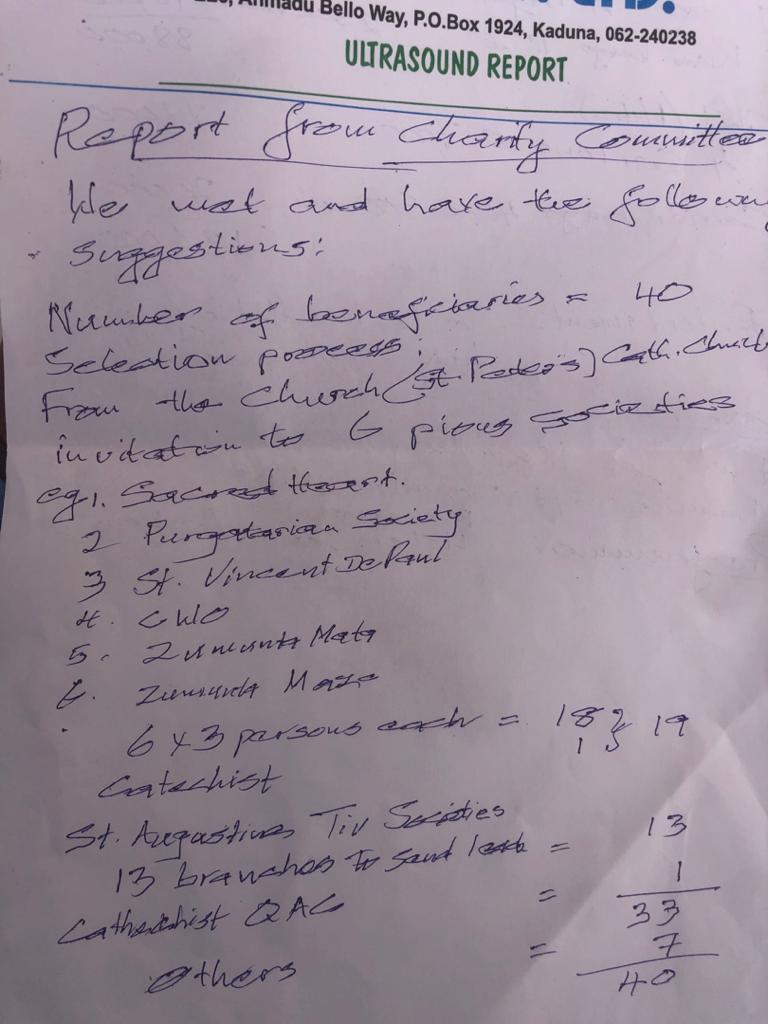 Ahmadu Bello Way, P.O.Box 1924, Kaduna, 062-240238
ULTRASOUND REPORT
Report from Charity Committee
We met and have the following
suggestions:
Number of beneficiaries = 40
Selection process:
From the Church (St. Peter's) Cath. Church
invitation to 6 pious societies
eg 1. Sacred Heart.
2 Purgatorian Society
3 St. Vincent De Paul
4. CWO
5. Zumunta Mata
6. Zumunta Maza
6 x 3 persons each = 18 } 19
Catechist 1
St. Augustines Tiv Societies
13 branches to send = 13
Cathechist QAC = 1
33
Others = 7
40